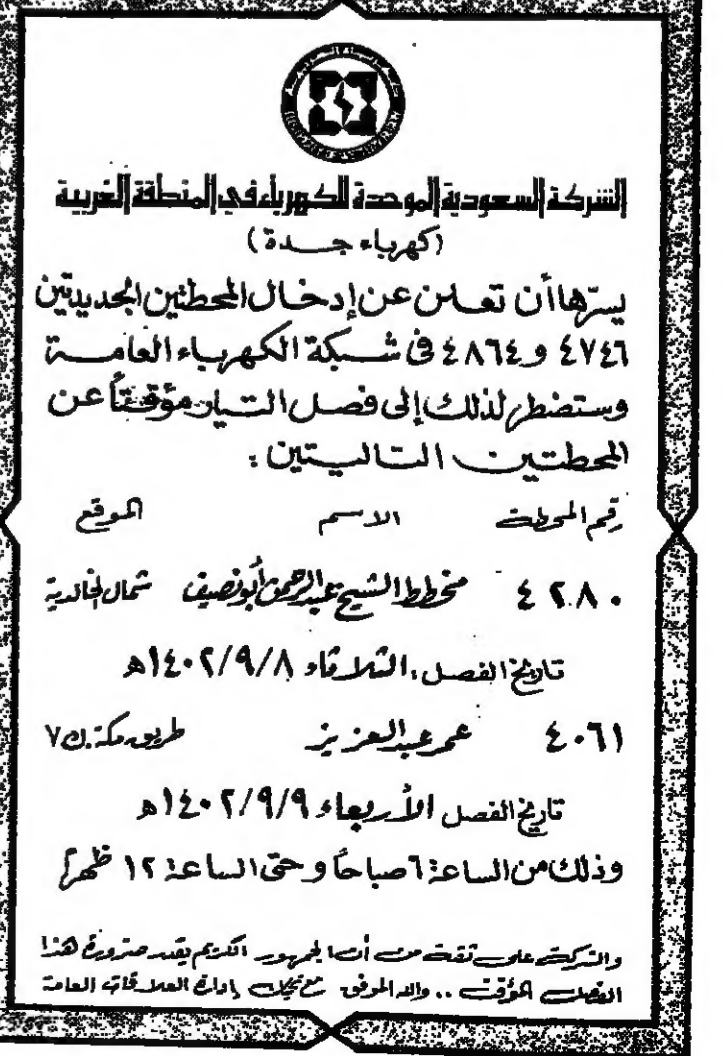 الشركة السعودية الموحدة للكهرباء في المنطقة الغربية
(كهرباء جدة)
يسرّها أن تعلن عن إدخال المحطتين الجديدتين
٤٧٤٦ و ٤٨٦٤ في شبكة الكهرباء العامة
وستضطر لذلك إلى فصل التيار مؤقتاً عن
المحطتين التاليتين :
رقم المحطة الاسم الموقع
٤٢٨٠ مخطط الشيخ عبدالرحمن أبونصيف شمال الخالدية
تاريخ الفصل : الثلاثاء ١٤٠٢/٩/٨هـ
٤٠٦١ عمر عبدالعزيز طريق مكة ك ٧
تاريخ الفصل الأربعاء ١٤٠٢/٩/٩هـ
وذلك من الساعة ٦ صباحاً وحتى الساعة ١٢ ظهراً
والشركة على ثقة من أن الجمهور الكريم يقدر ضرورة هذا
الفصل المؤقت .. والله الموفق مع تحيات إدارة العلاقات العامة